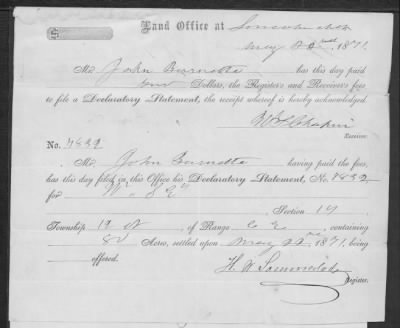 Land Office at Lincoln Neb
May 22nd 1871.
Mr. John Burnette has this day paid
two Dollars, the Register's and Receiver's fees
to file a Declaratory Statement, the receipt whereof is hereby acknowledged.
Receiver.
No. 7832
Mr. John Burnette having paid the fees,
has this day filed in this Office his Declaratory Statement, No. 7832,
for W 2 S E 4
Section 14
Township 12 N of Range 6 E, containing
80 Acres, settled upon May 22nd 1871, being
offered.
Register.